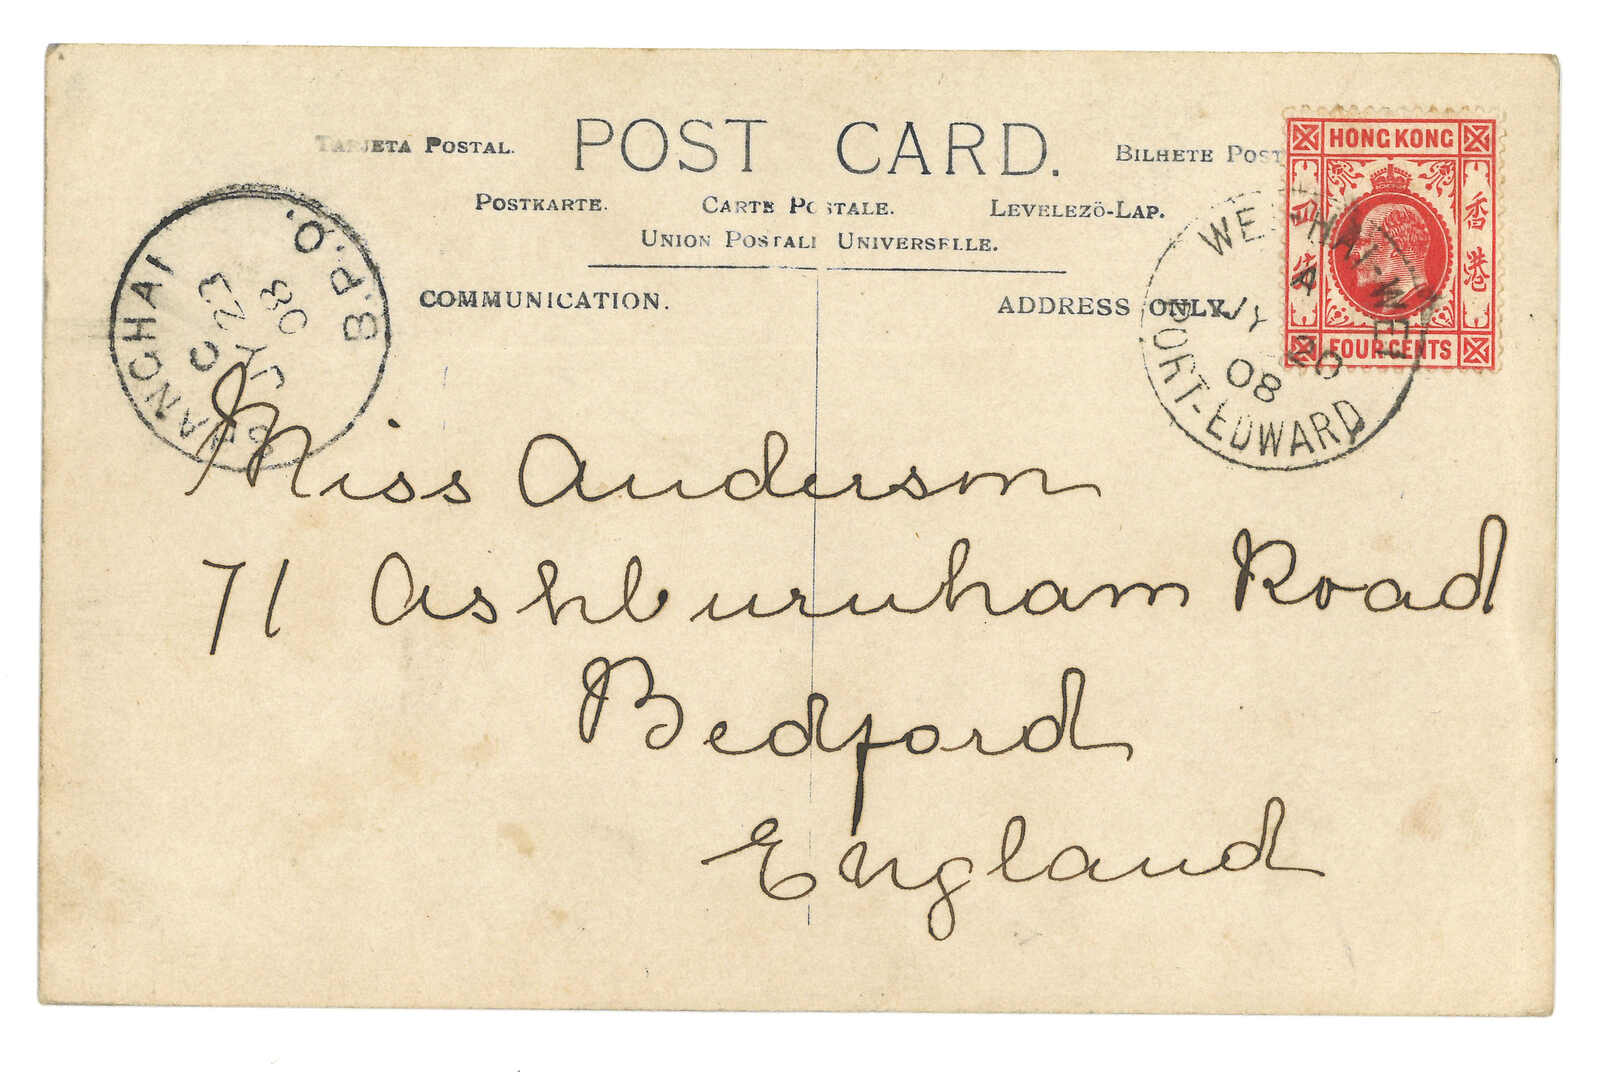 TARJETA POSTAL. POST CARD. BILHETE POST
POSTKARTE. CARTE POSTALE. LEVELEZÖ-LAP.
UNION POSTALE UNIVERSELLE.
COMMUNICATION. ADDRESS ONLY.
HONG KONG
香港
四仙
FOUR CENTS
WEI-HAI-WEI
A
JY 20
08
PORT-EDWARD
SHANGHAI B.P.O.
C
JY 23
08
Miss Anderson
71 Ashburnham Road
Bedford
England